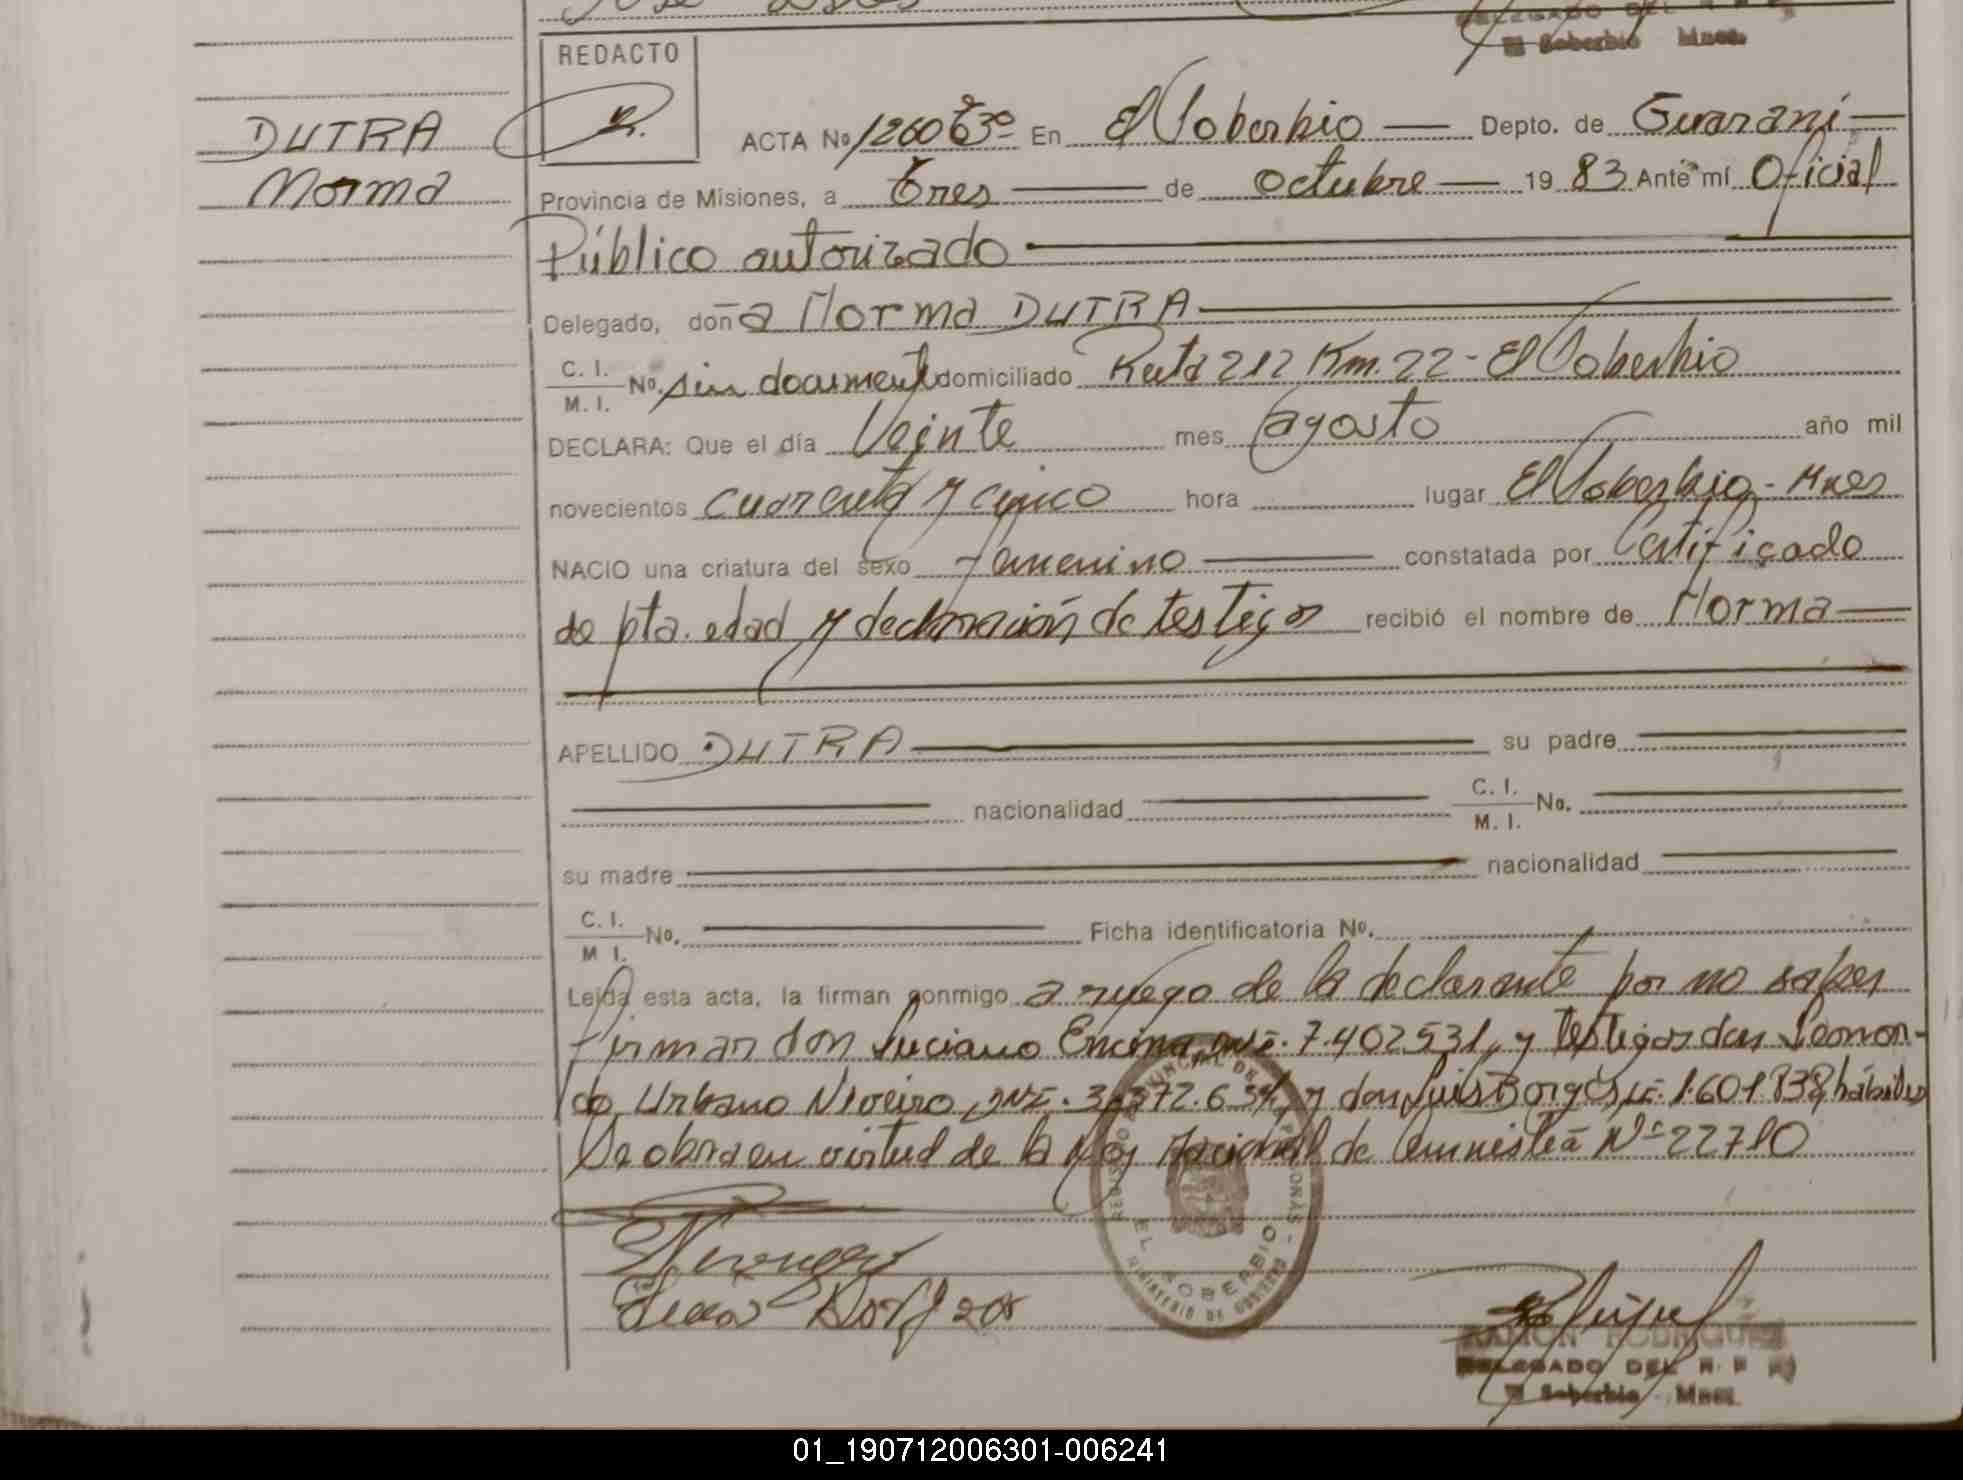 DELEGADO DEL R P P
El Soberbio Mnes.
REDACTO
DUTRA
Norma
ACTA No 1260 Tº 3º En El Soberbio Depto. de Guaraní
Provincia de Misiones, a Tres de octubre 19 83 Ante mí Oficial
Público autorizado
Delegado, doña Norma DUTRA
C. I.
M. I. No. sin document domiciliado Ruta 212 Km. 22 - El Soberbio
DECLARA: Que el día Veinte mes agosto año mil
novecientos cuarenta y cinco hora lugar El Soberbio - Mnes
NACIO una criatura del sexo femenino constatada por Certificado
de pta. edad y declaración de testigos recibió el nombre de Norma
APELLIDO DUTRA su padre
nacionalidad C. I. M. I. No.
su madre nacionalidad
C. I. M I. No. Ficha identificatoria No.
Leída esta acta, la firman conmigo a ruego de la declarante por no saber
firmar don Luciano Encina 7.402531, y testigos don
Urbano y don Luis Borges, 1.601.838, hábiles
Se obra en virtud de la Ley Nacional de Amnistía Nº 22710
REGISTRO PROVINCIAL DE LAS PERSONAS -
EL SOBERBIO
MINISTERIO DE GOBIERNO
RAMON RODRIGUEZ
DELEGADO DEL R P P
El Soberbio - Mnes.
01_190712006301-006241